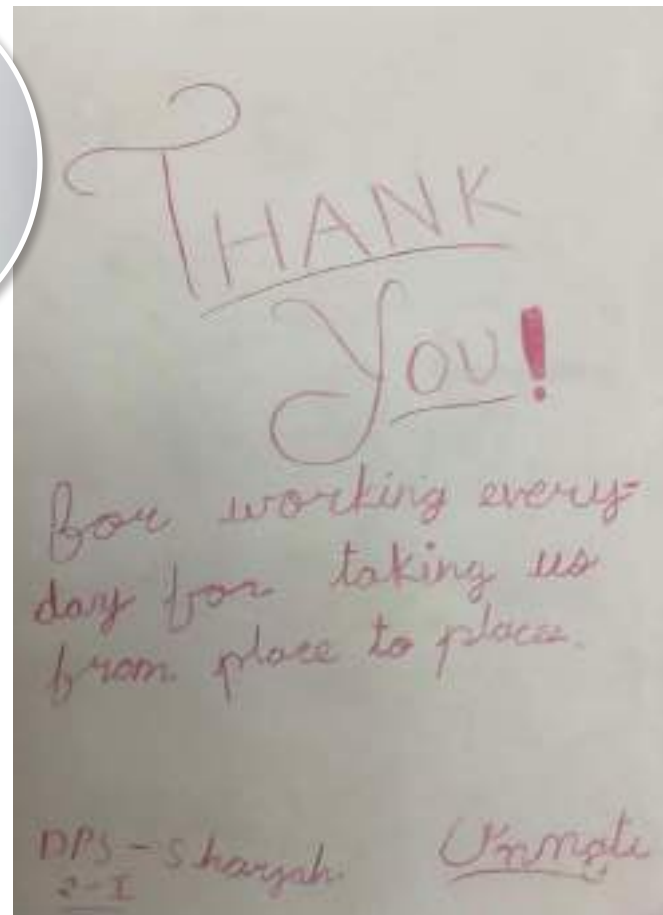 THANK
YOU!
For working every-
day for taking us
from place to place.
DPS - Sharjah Unnati
2-I